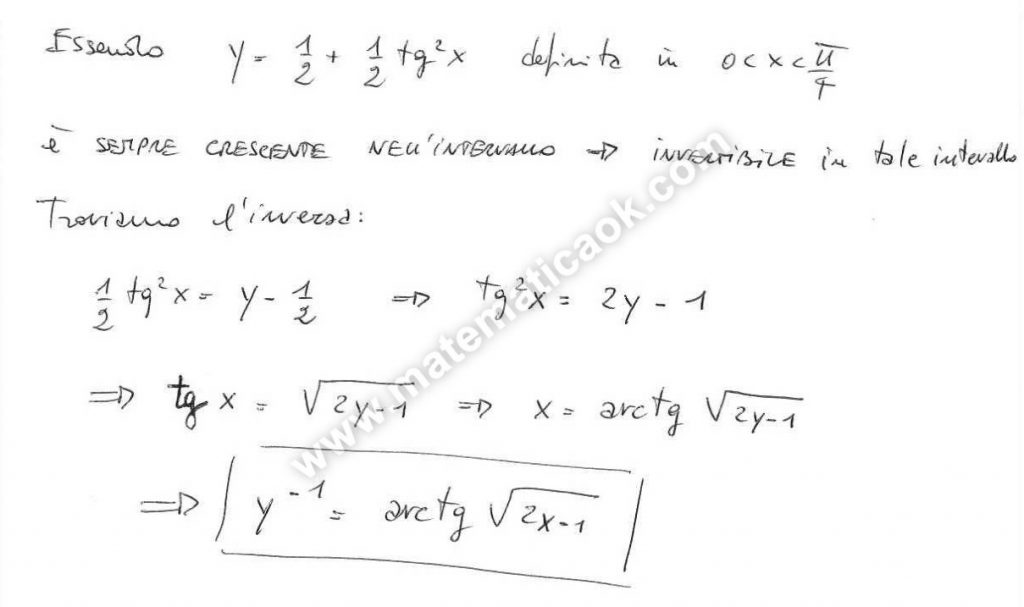 Essendo y = 1/2 + 1/2 tg²x definita in 0 < x < π/4
è SEMPRE CRESCENTE NELL'INTERVALLO ⇒ INVERTIBILE in tale intervallo
Troviamo l'inversa:
1/2 tg²x = y - 1/2 ⇒ tg²x = 2y - 1
⇒ tg x = √2y-1 ⇒ x = arctg √2y-1
⇒ y⁻¹ = arctg √2x-1
www.matematicaok.com